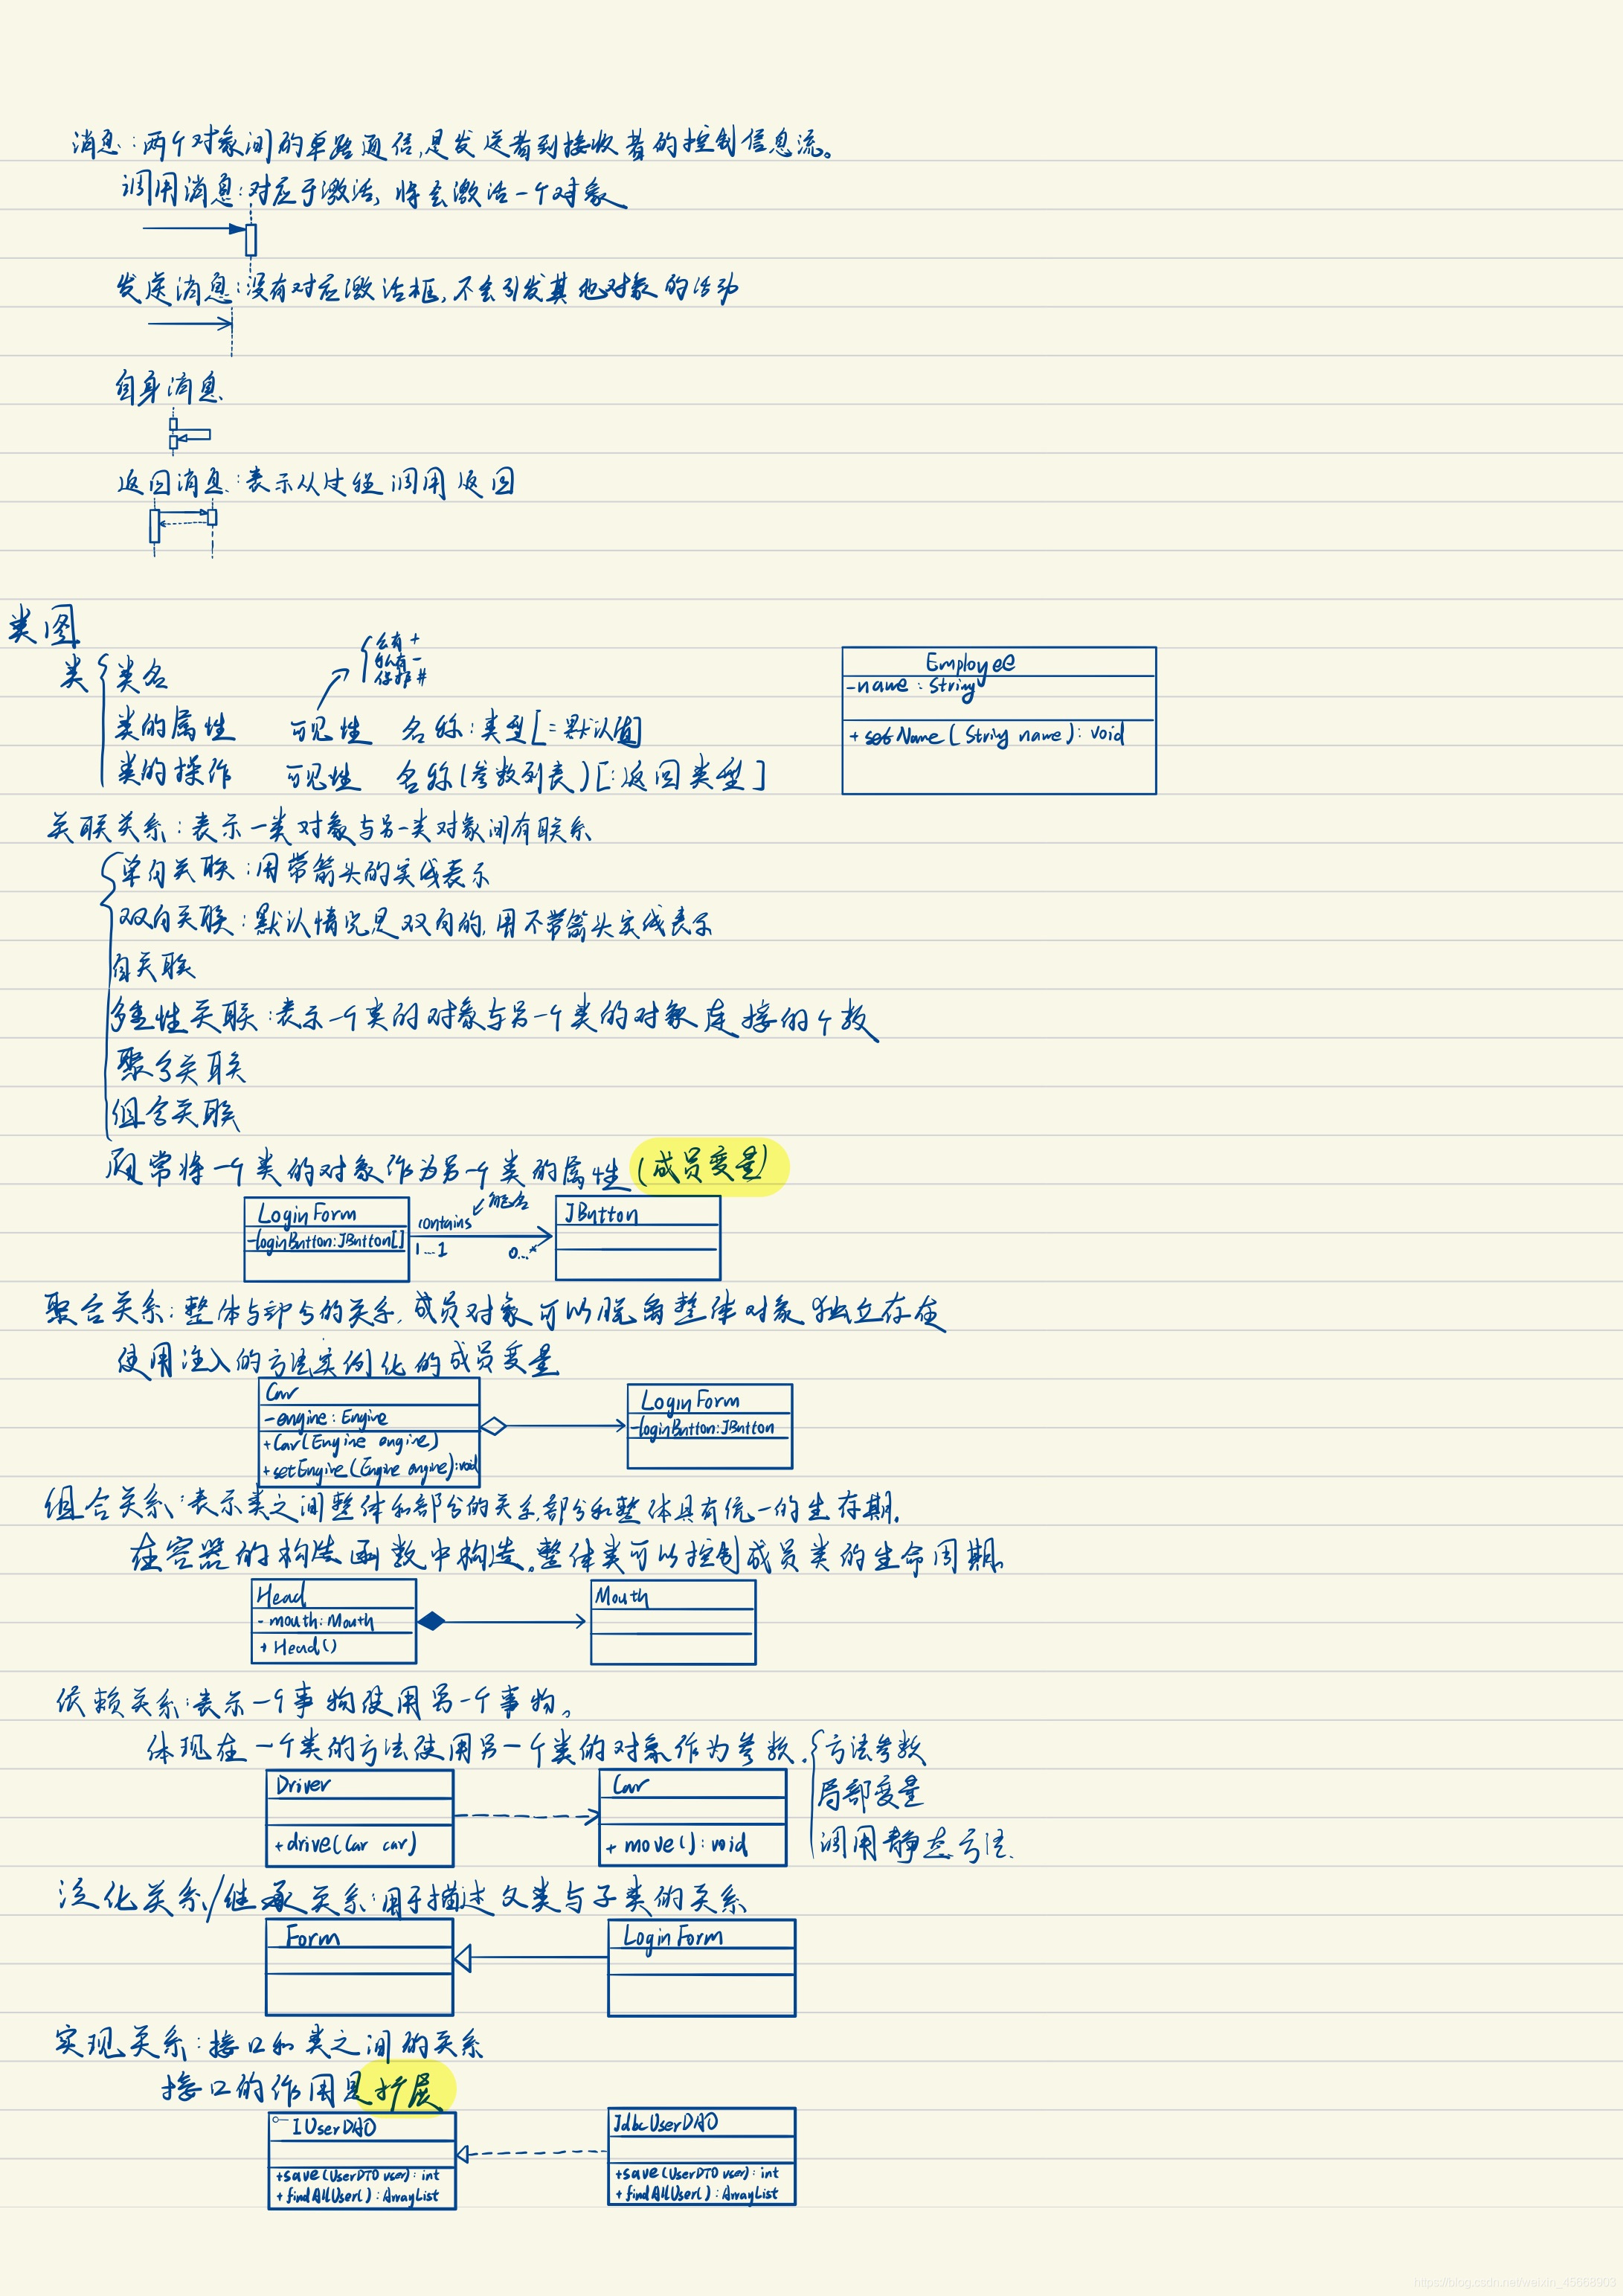 消息:两个对象间的单路通信,是发送者到接收者的控制信息流。
调用消息:对应于激活,将会激活一个对象
发送消息:没有对应激活框,不会引发其他对象的活动
自身消息
返回消息:表示从过程调用返回
类图
公有 +
私有 -
保护 #
类 类名
类的属性 可见性 名称:类型[=默认值]
类的操作 可见性 名称(参数列表)[:返回类型]
Employee
-name:String
+setName(String name):void
关联关系:表示一类对象与另一类对象间有联系
单向关联:用带箭头的实线表示
双向关联:默认情况是双向的,用不带箭头实线表示
自关联
多重性关联:表示一个类的对象与另一个类的对象连接的个数
聚合关联
组合关联
通常将一个类的对象作为另一个类的属性(成员变量)
LoginForm
-loginButton:JButton[]
contains
1...1
0...*
JButton
聚合关系:整体与部分的关系,成员对象可以脱离整体对象独立存在
使用注入的方法实例化的成员变量
Car
-engine:Engine
+Car(Engine engine)
+setEngine(Engine engine):void
LoginForm
-loginButton:JButton
组合关系:表示类之间整体和部分的关系,部分和整体具有统一的生存期.
在容器的构造函数中构造。整体类可以控制成员类的生命周期.
Head
-mouth:Mouth
+Head()
Mouth
依赖关系:表示一个事物使用另一个事物。
体现在一个类的方法使用另一个类的对象作为参数. 方法参数
局部变量
调用静态方法.
Driver
+drive(Car car)
Car
+move():void
泛化关系/继承关系:用于描述父类与子类的关系
Form
LoginForm
实现关系:接口和类之间的关系
接口的作用是扩展
IUserDAO
+save(UserDTO user):int
+findAllUser():ArrayList
JdbcUserDAO
+save(UserDTO user):int
+findAllUser():ArrayList
https://blog.csdn.net/weixin_45668903